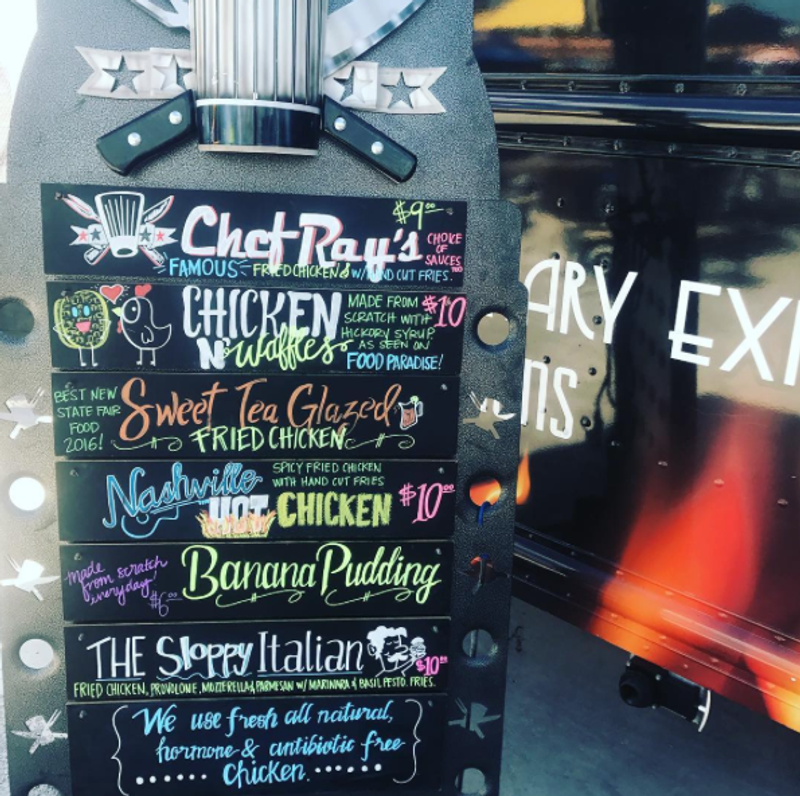 $9.00
Chef Ray's
CHOICE
OF
SAUCES
FAMOUS FRIED CHICKEN & W/ HAND CUT FRIES.
CHICKEN
N' Waffles
MADE FROM
SCRATCH WITH
HICKORY SYRUP
AS SEEN ON
FOOD PARADISE!
$10
BEST NEW
STATE FAIR
FOOD
2016!
Sweet Tea Glazed
FRIED CHICKEN
Nashville
HOT CHICKEN
SPICY FRIED CHICKEN
WITH HAND CUT FRIES
$10.00
made
from scratch
everyday!
$6.00
Banana Pudding
THE Sloppy Italian
$10.00
FRIED CHICKEN, PROVOLONE, MOZZERELLA & PARMESAN W/ MARINARA & BASIL PESTO. FRIES.
We use fresh all natural,
hormone & antibiotic free
chicken.
ARY EXP
NS